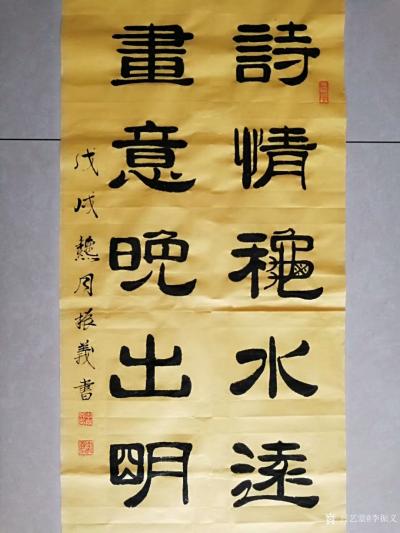 詩情龝水遠
畫意晚出明
戊戌熱月振義書
艺堂@李振义